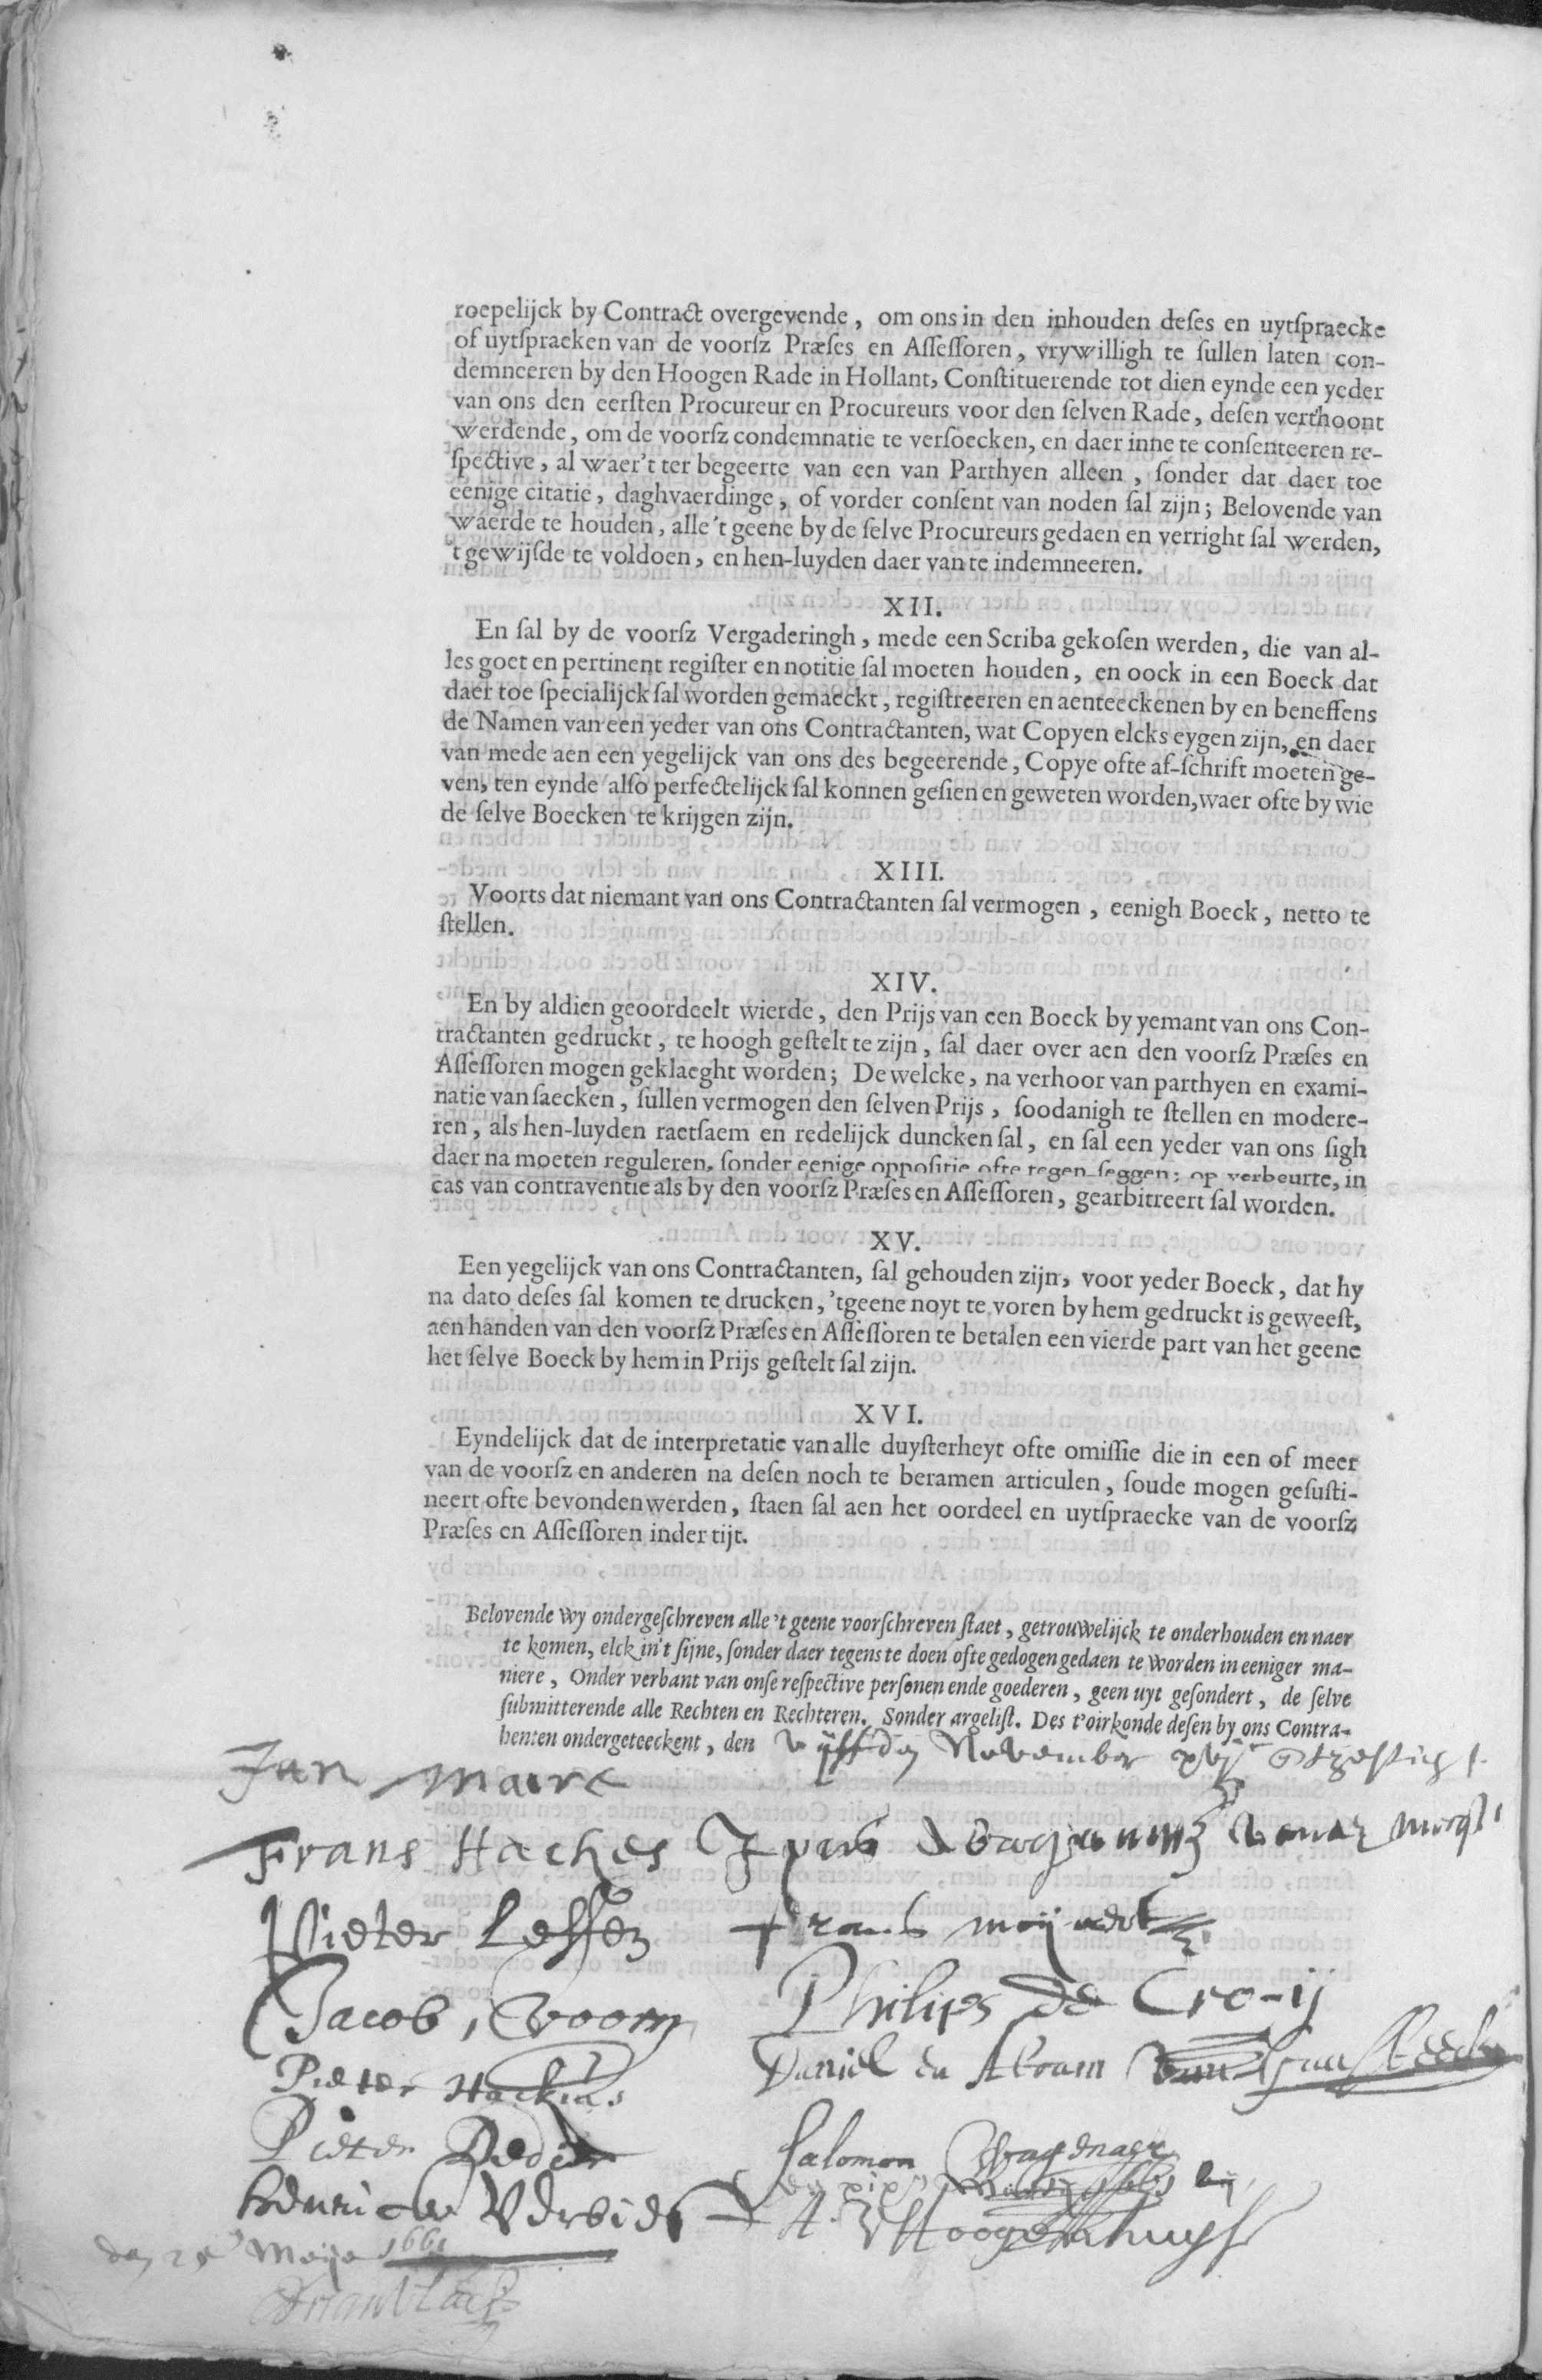 roepelijck by Contract overgevende, om ons in den inhouden deses en uytspraecke
of uytspraeken van de voorsz Præses en Assessoren, vrywilligh te sullen laten con-
demneeren by den Hoogen Rade in Hollant, Constituerende tot dien eynde een yeder
van ons den eersten Procureur en Procureurs voor den selven Rade, desen verthoont
werdende, om de voorsz condemnatie te versoecken, en daer inne te consenteeren re-
spective, al waer't ter begeerte van een van Parthyen alleen, sonder dat daer toe
eenige citatie, daghvaerdinge, of vorder consent van noden sal zijn; Belovende van
waerde te houden, alle 't geene by de selve Procureurs gedaen en verright sal werden,
't gewijsde te voldoen, en hen-luyden daer van te indemneeren.
XII.
En sal by de voorsz Vergaderingh, mede een Scriba gekosen werden, die van al-
les goet en pertinent register en notitie sal moeten houden, en oock in een Boeck dat
daer toe specialijck sal worden gemaeckt, registreeren en aenteeckenen by en beneffens
de Namen van een yeder van ons Contractanten, wat Copyen elcks eygen zijn, en daer
van mede aen een yegelijck van ons des begeerende, Copye ofte af-schrift moeten ge-
ven, ten eynde also perfectelijck sal konnen gesien en geweten worden, waer ofte by wie
de selve Boecken te krijgen zijn.
XIII.
Voorts dat niemant van ons Contractanten sal vermogen, eenigh Boeck, netto te
stellen.
XIV.
En by aldien geoordeelt wierde, den Prijs van een Boeck by yemant van ons Con-
tractanten gedruckt, te hoogh gestelt te zijn, sal daer over aen den voorsz Præses en
Assessoren mogen geklaeght worden; De welcke, na verhoor van parthyen en exami-
natie van saecken, sullen vermogen den selven Prijs, soodanigh te stellen en modere-
ren, als hen-luyden raetsaem en redelijck duncken sal, en sal een yeder van ons sigh
daer na moeten reguleren, sonder eenige oppositie ofte tegen-seggen; op verbeurte, in
cas van contraventie als by den voorsz Præses en Assessoren, gearbitreert sal worden.
XV.
Een yegelijck van ons Contractanten, sal gehouden zijn, voor yeder Boeck, dat hy
na dato deses sal komen te drucken, 'tgeene noyt te voren by hem gedruckt is geweest,
aen handen van den voorsz Præses en Assessoren te betalen een vierde part van het geene
het selve Boeck by hem in Prijs gestelt sal zijn.
XVI.
Eyndelijck dat de interpretatie van alle duysterheyt ofte omissie die in een of meer
van de voorsz en anderen na desen noch te beramen articulen, soude mogen gesusti-
neert ofte bevonden werden, staen sal aen het oordeel en uytspraecke van de voorsz
Præses en Assessoren inder tijt.
Belovende wy ondergeschreven alle 't geene voorschreven staet, getrouwelijck te onderhouden en naer
te komen, elck in't sijne, sonder daer tegens te doen ofte gedogen gedaen te worden in eeniger ma-
niere, Onder verbant van onse respective personen ende goederen, geen uyt gesondert, de selve
submitterende alle Rechten en Rechteren. Sonder argelist. Des t'oirkonde desen by ons Contra-
henten ondergeteeckent, den vijffden November
Jan Maire
Frans Hackes
Pieter Leffen
Jacob, Vroom Philips de Cro-ij
Pieter Hackius Daniel en Abram van Gaasbeeck
Pieter Salomon Wagenaer
A. V Hoogenhuyse
den Meije 1661